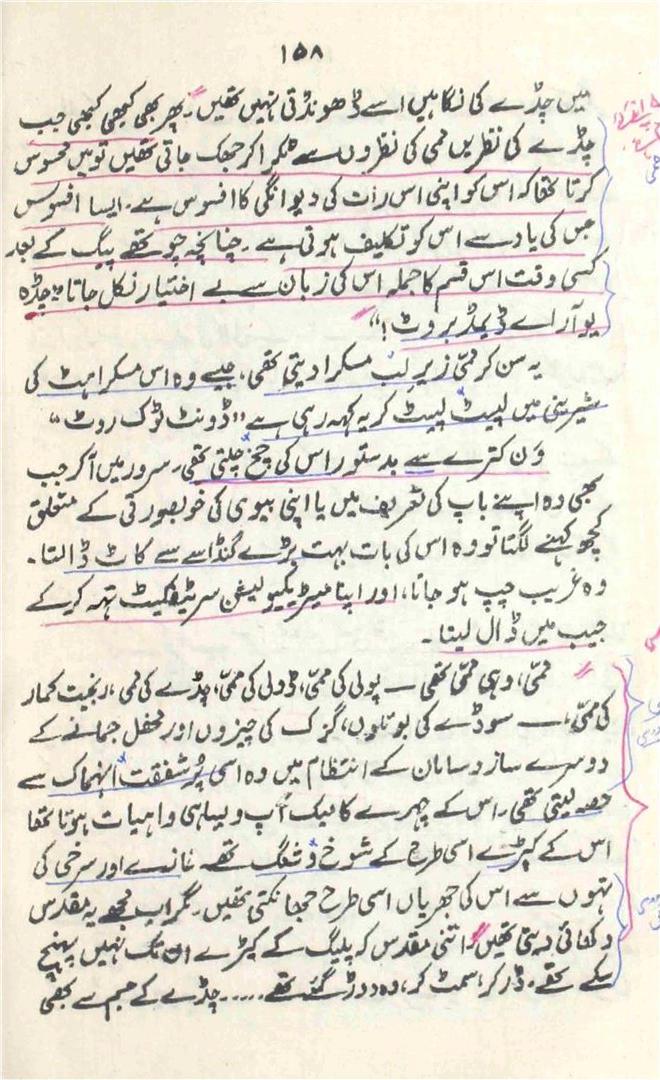 ۱۵۸
میں چڈے کی نگاہیں اسے ڈھونڈتی نہیں تھیں۔ پھر بھی کبھی کبھی جب
چڈے کی نظریں ممی کی نظروں سے ٹکرا کر جھک جاتی تھیں تو میں محسوس
کرتا تھا کہ اس کو اپنی اس رات کی دیوانگی کا افسوس ہے۔ ایسا افسوس
جس کی یاد سے اس کو تکلیف ہوتی ہے۔ چنانچہ چوتھے پیگ کے بعد
کسی وقت اس قسم کا جملہ اس کی زبان سے بے اختیار نکل جاتا "چڈہ
یو آر اے ڈیمڈ بروٹ!"
یہ سن کر ممی زیر لب مسکرا دیتی تھی، جیسے وہ اس مسکراہٹ کی
شیرینی میں لپیٹ لپیٹ کر یہ کہہ رہی ہے "ڈونٹ ٹوک روٹ"
ون کترے سے بدستور اس کی چخ چلتی تھی۔ سرور میں آکر جب
بھی وہ اپنے باپ کی تعریف میں یا اپنی بیوی کی خوبصورتی کے متعلق
کچھ کہنے لگتا تو وہ اس کی بات بہت بڑے گنڈاسے سے کاٹ ڈالتا۔
وہ غریب چپ ہو جاتا، اور اپنا میٹریکیولیشن سرٹیفکیٹ تہہ کر کے
جیب میں ڈال لیتا۔
ممی، وہی ممی تھی — پولی کی ممی، ڈولی کی ممی، چڈے کی ممی، رنجیت کمار
کی ممی، — سوڈے کی بوتلوں، گزک کی چیزوں اور محفل جمانے کے
دوسرے ساز و سامان کے انتظام میں وہ اسی پُر شفقت انہماک سے
حصہ لیتی تھی۔ اس کے چہرے کا میک اَپ ویسا ہی واہیات ہوتا تھا
اس کے کپڑے اسی طرح کے شوخ و شنگ تھے۔ غازے اور سرخی کی
تہوں سے اس کی جھریاں اسی طرح جھانکتی تھیں۔ مگر اب مجھے یہ مقدس
دکھائی دیتی تھیں۔ اتنی مقدس کہ پلیگ کے کیڑے ان تک نہیں پہنچ
سکے تھے۔ ڈر کر، سمٹ کر، وہ دوڑ گئے تھے..... چڈے کے جسم سے بھی